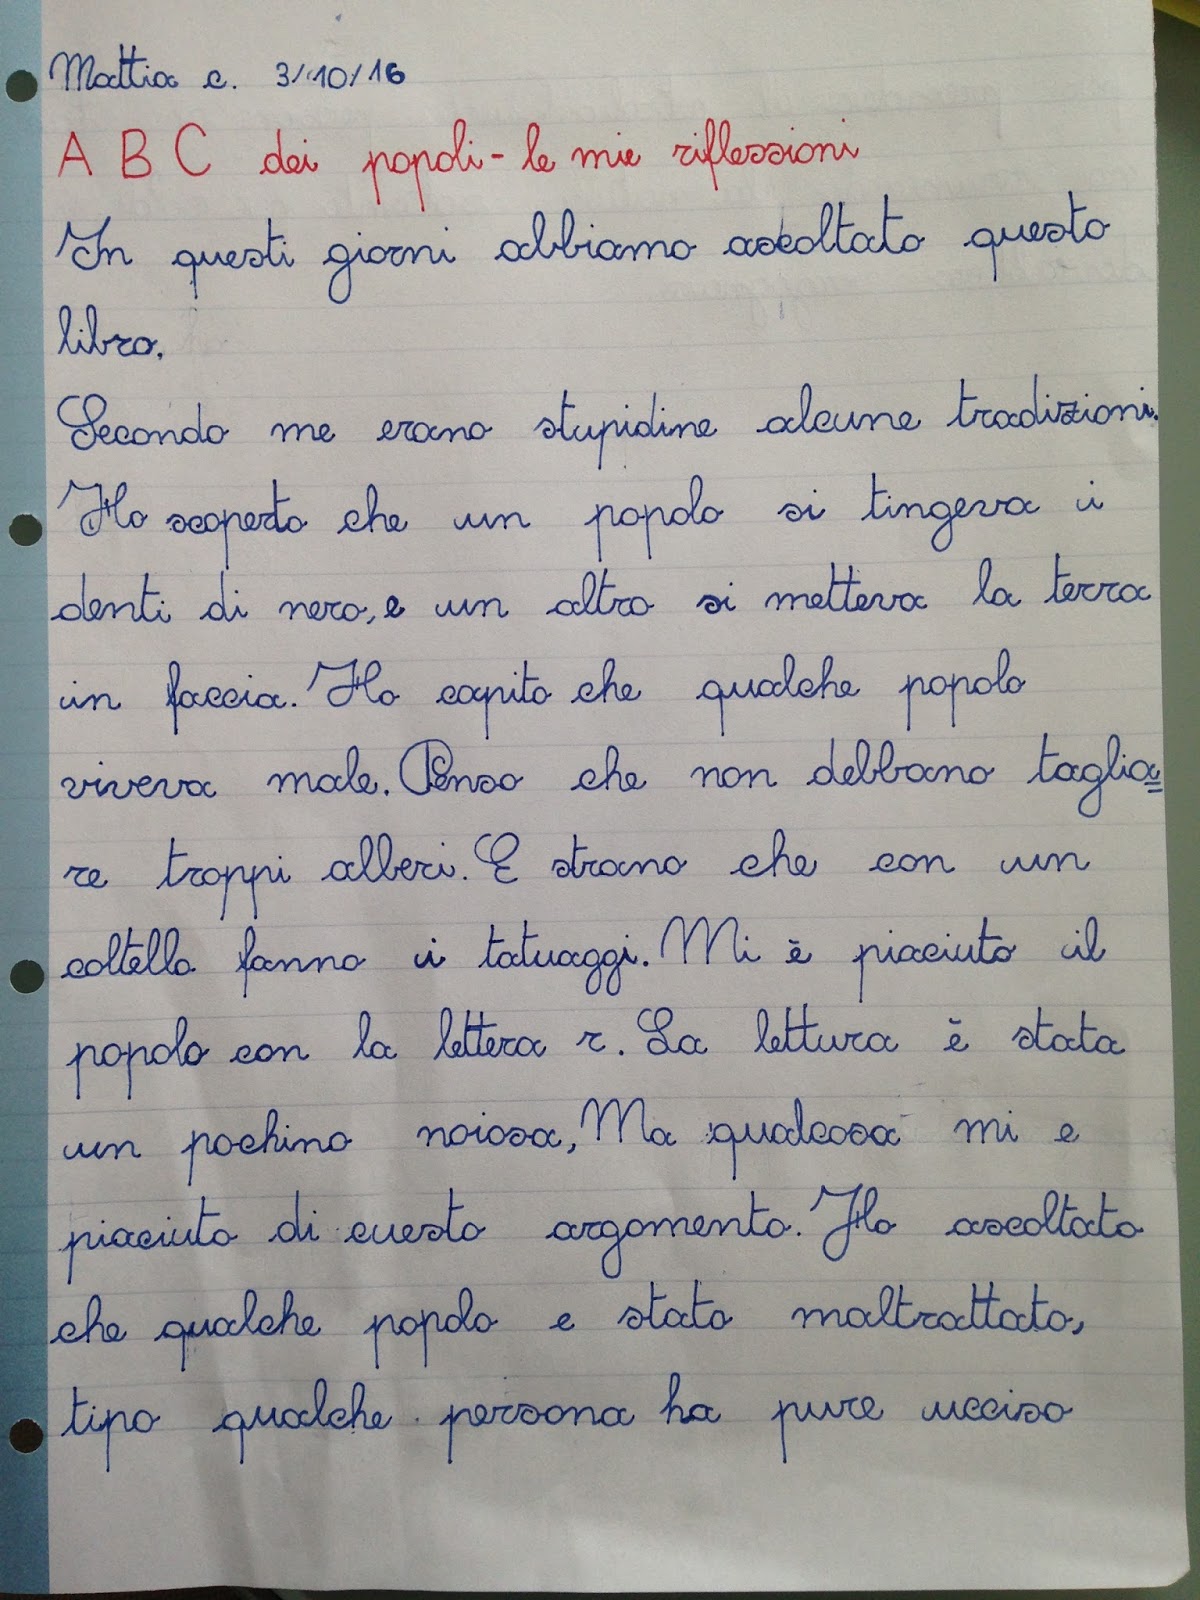 Mattia c. 3/10/16
A B C dei popoli - le mie riflessioni
In questi giorni abbiamo ascoltato questo
libro.
Secondo me erano stupidine alcune tradizioni.
Ho scoperto che un popolo si tingeva i
denti di nero, e un altro si metteva la terra
in faccia. Ho capito che qualche popolo
viveva male. Penso che non debbano taglia=
re troppi alberi. E strano che con un
coltello fanno i tatuaggi. Mi è piaciuto il
popolo con la lettera r. La lettura è stata
un pochino noiosa, Ma qualcosa mi e
piaciuto di cuesto argomento. Ho ascoltato
che qualche popolo e stato maltrattato,
tipo qualche persona ha pure ucciso